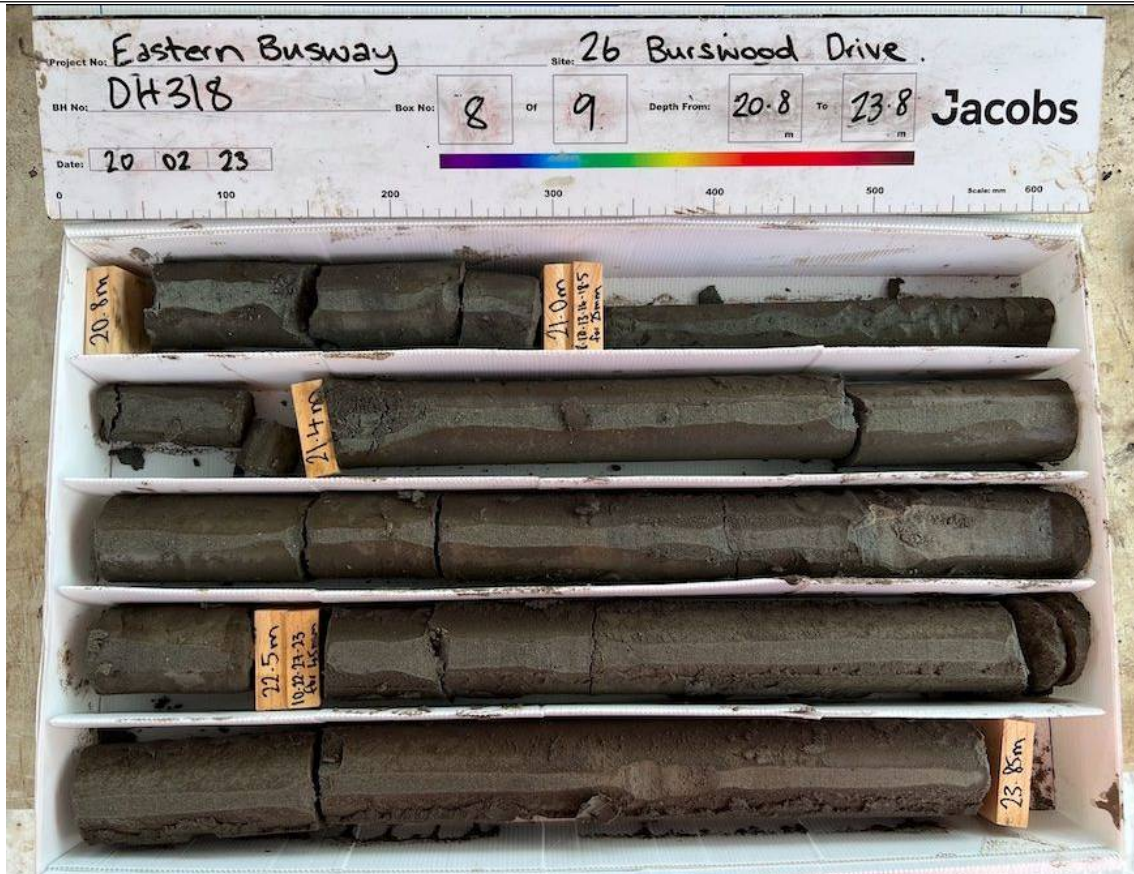 Project No: Eastern Busway Site: 26 Burswood Drive.
BH No: DH318 Box No: 8 Of 9 Depth From: 20.8 m To 23.8 m Jacobs
Date: 20 02 23
0 100 200 300 400 500 Scale: mm 600
20.8m
21.0m
for 25mm
21.4m
22.5m
10-22-27-23
for 45mm
23.85m